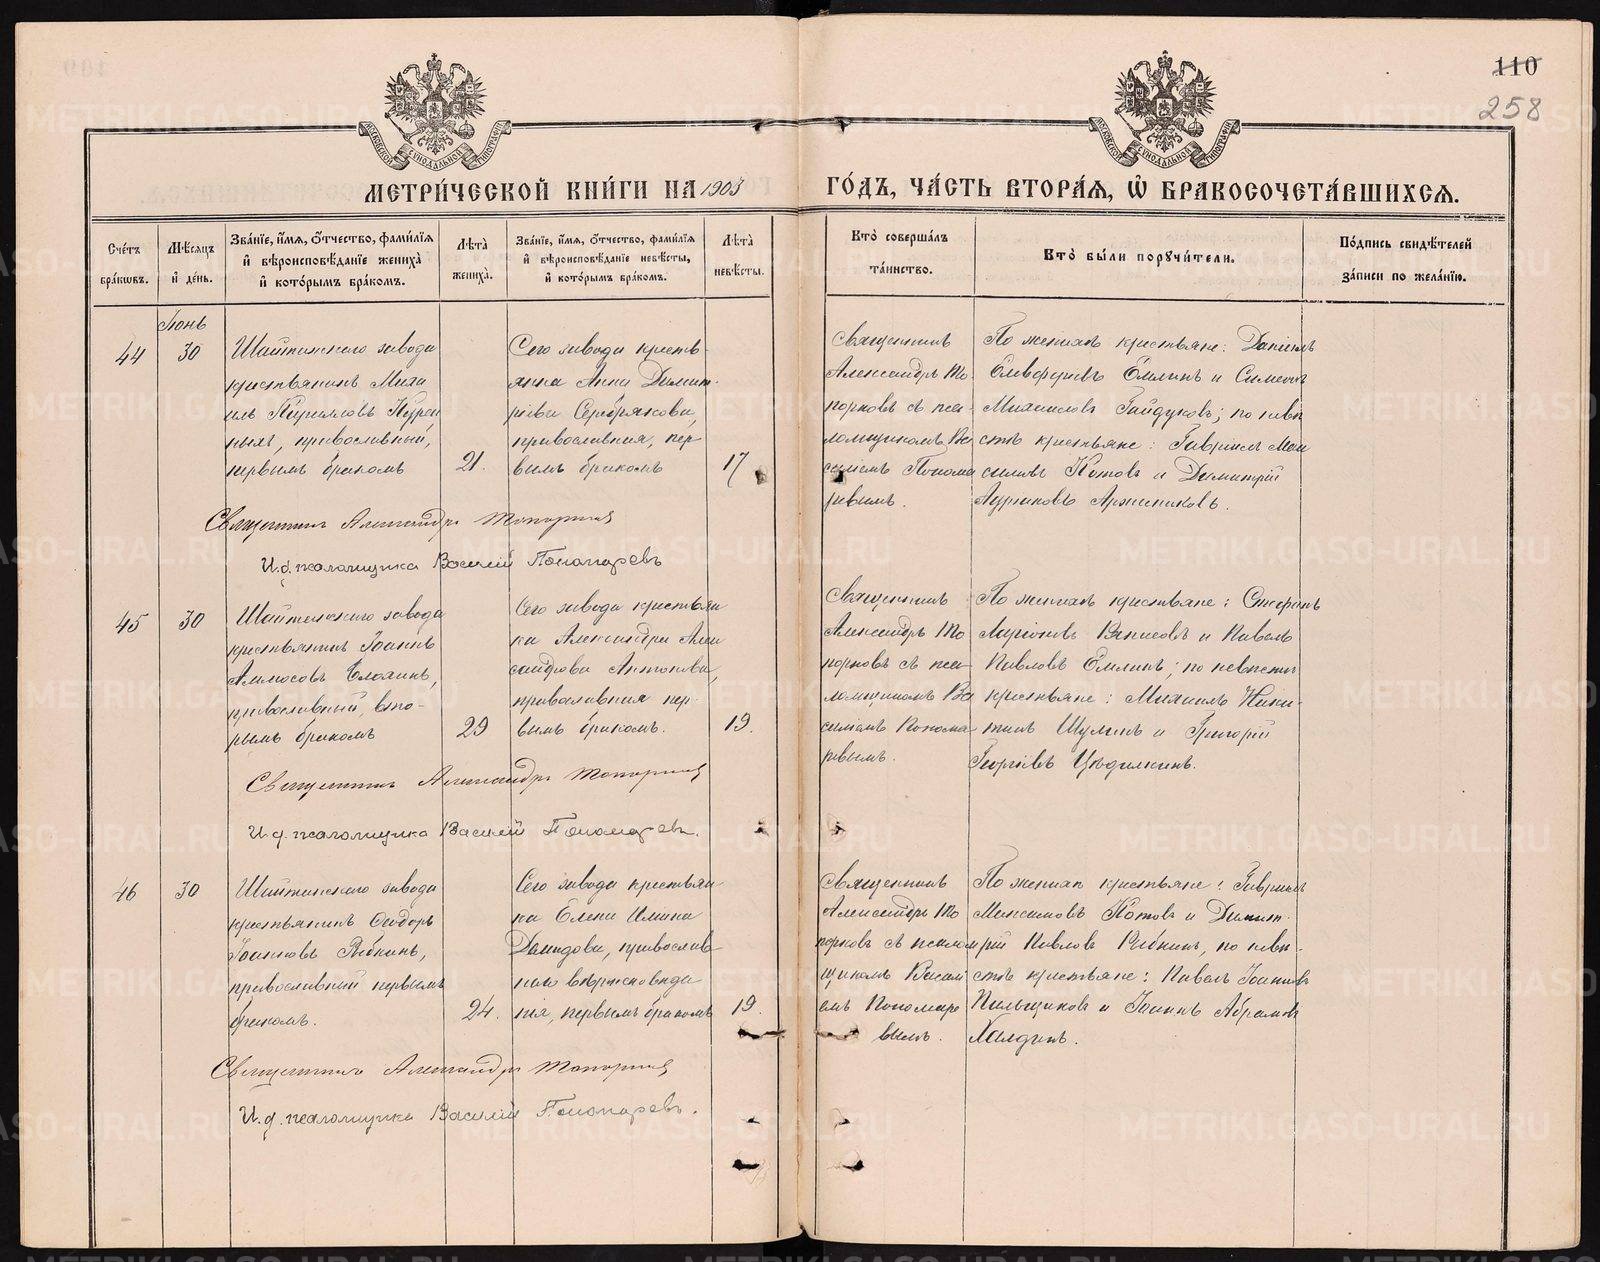 110
258
МЕТРИ́ЧЕСКОЙ КНИ́ГИ НА 1903 ГО́ДЪ, ЧА́СТЬ ВТОРА́Я, Ѡ҆ БРАКОСОЧЕТА́ВШИХСЯ.
Сче́тъ бра́кѡвъ.
Мѣ́сяцъ и҆ де́нь.
Зва́нїе, и҆́мя, ѻ҆́тчество, фами́лїя и҆ вѣроисповѣ́данїе жениха̀ и҆ кото́рымъ бра́комъ.
Лѣ́та жениха̀.
Зва́нїе, и҆́мя, ѻ҆́тчество, фами́лїя и҆ вѣроисповѣ́данїе невѣ́сты, и҆ кото́рымъ бра́комъ.
Лѣ́та невѣ́сты.
Кто̀ соверша́лъ та́инство.
Кто̀ бы́ли порꙋчи́тели.
По́дпись свидѣ́телей за́писи по жела́нїю.
Іюнь
44
30
Шайтанскаго завода
крестьянинъ Миха
илъ
православный,
первымъ бракомъ
21.
Сего завода кресть-
янка Анна Димит-
ріева Серебрякова,
православная, пер
вымъ бракомъ
17
Священникъ
Александръ То
порковъ съ пса-
ломщикомъ Ва
силіемъ Понома
ревымъ.
По женихѣ крестьяне: Даніилъ
Елевферіевъ Емлинъ и Симеонъ
Михаиловъ Гайдуковъ; по невѣ
стѣ крестьяне: Гавріилъ Мак
симовъ Котовъ и Димитрій
Аржанниковъ.
Священникъ Александръ Топорковъ
И.д. псаломщика Василій Пономаревъ
45
30
Шайтанскаго завода
крестьянинъ Іоаннъ
православный, вто-
рымъ бракомъ
29
Сего завода крестьян
ка Александра Алек
сандрова Антонова,
православная пер-
вымъ бракомъ.
19.
Священникъ
Александръ То
порковъ съ пса-
ломщикомъ Ва
силіемъ Понома
ревымъ.
По женихѣ крестьяне: Стефанъ
Ларіоновъ и Павелъ
Павловъ Емлинъ; по невѣстѣ
крестьяне: Михаилъ Ники-
тинъ Шулинъ и Григорій
Георгіевъ Цѣдилкинъ.
Священникъ Александръ Топорковъ
И.д. псаломщика Василій Пономаревъ.
46
30
Шайтанскаго завода
крестьянинъ Ѳеодоръ
Іоанновъ Рябкинъ,
православный первымъ
бракомъ.
24.
Сего завода крестьян
ка Елена
Давидова, православ
наго вѣроисповѣда
нія, первымъ бракомъ
19.
Священникъ
Александръ То
порковъ съ псалом
щикомъ Василі
емъ Пономаре
вымъ.
По женихѣ крестьяне: Гавріилъ
Максимовъ Котовъ и Димит-
рій Павловъ Рябкинъ, по невѣ-
стѣ крестьяне: Павелъ Іоанновъ
Пильщиковъ и Іоаннъ Абрамовъ
Халдинъ.
Священникъ Александръ Топорковъ
И.д. псаломщика Василій Пономаревъ.